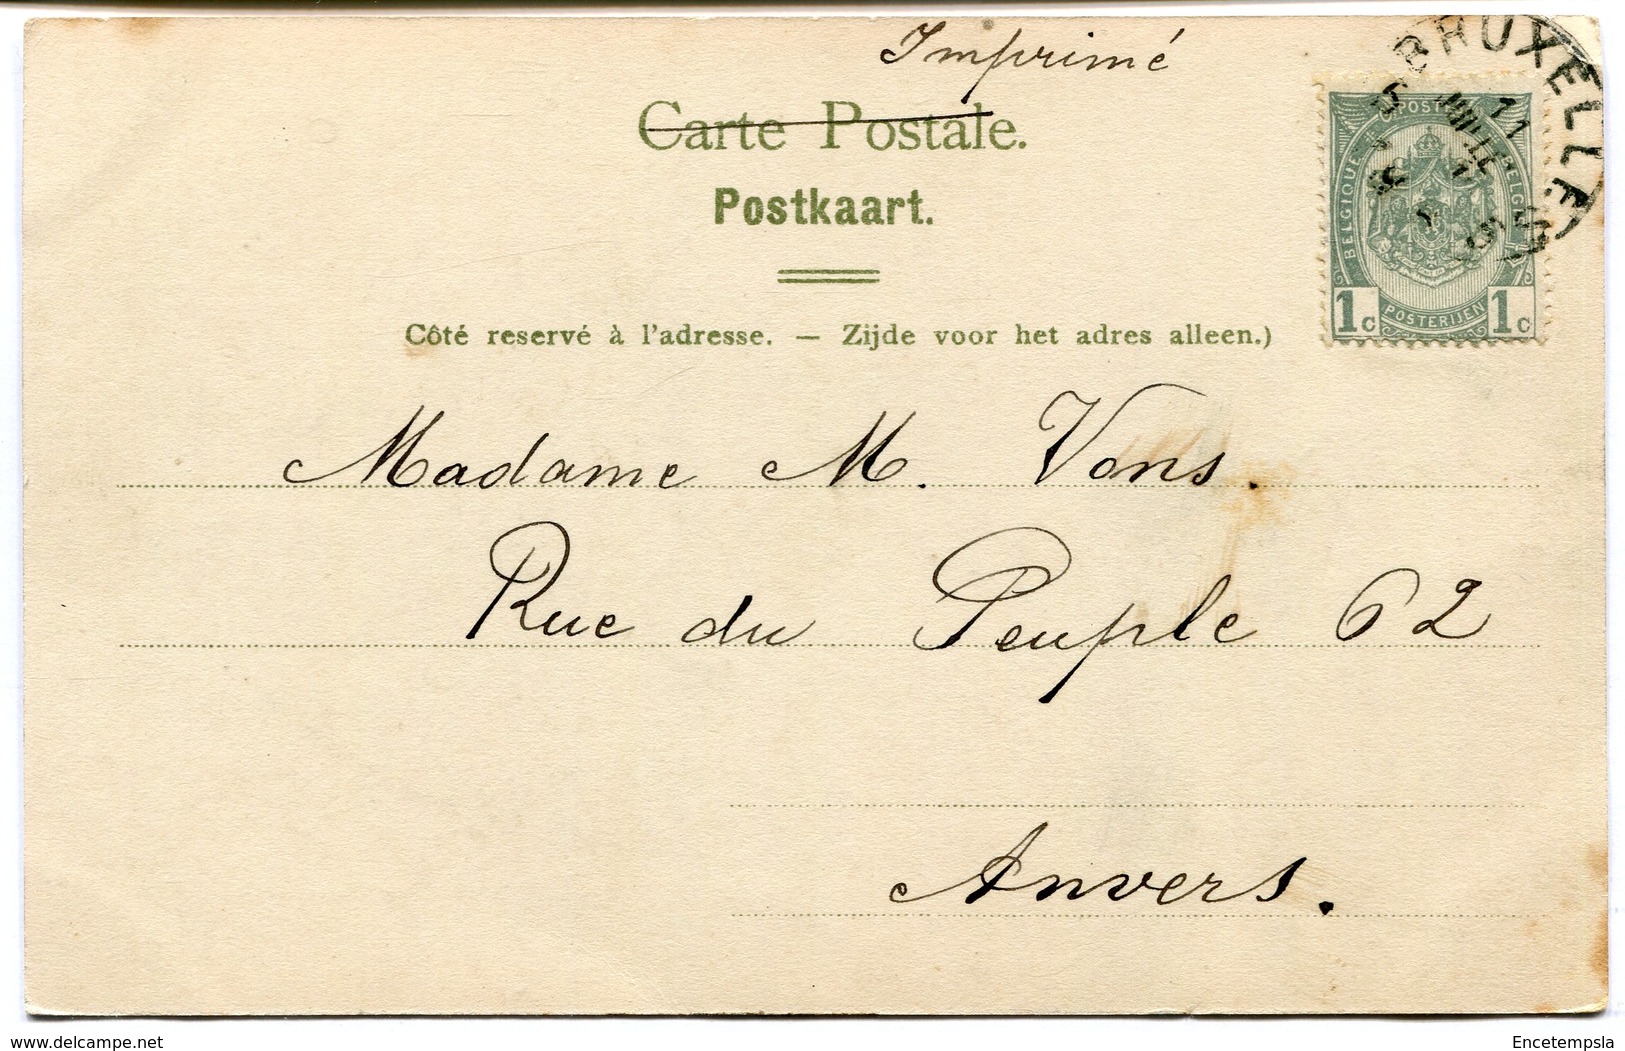 Imprimé
Carte Postale.
Postkaart.
Côté reservé à l'adresse. — Zijde voor het adres alleen.)
BRUXELLES
11
JUILLE
POSTE
BELGIQUE
BELGIE
1c POSTERIJEN 1c
Madame M. Vons.
Rue du Peuple 62
Anvers.
delcampe.net
Encetempsla